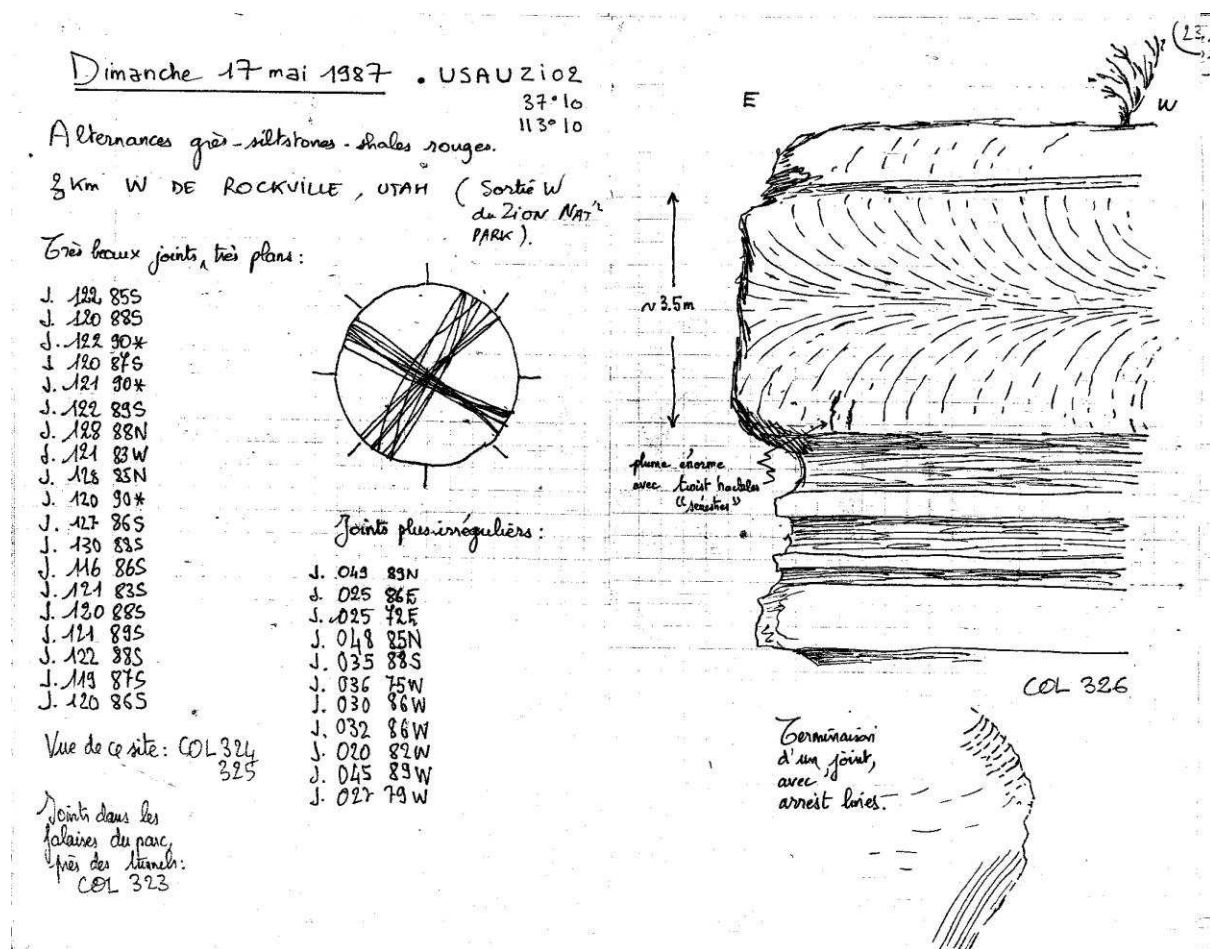 Dimanche 17 mai 1987 . USAUZi02
37°10
113°10
Alternances grès-siltstones-shales rouges.
Km W DE ROCKVILLE, UTAH (Sortie W
du ZION NAT'L
PARK).
Très beaux joints, très plans :
J. 122 85S
J. 120 88S
J. 122 90*
J. 120 87S
J. 121 90*
J. 122 89S
J. 128 88N
J. 121 83W
J. 128 85N
J. 120 90*
J. 127 86S
J. 130 83S
J. 116 86S
J. 121 83S
J. 120 88S
J. 121 89S
J. 122 88S
J. 119 87S
J. 120 86S
Vue de ce site : COL 324
325
Joints dans les
falaises du parc,
près des tunnels :
COL 323
Joints plus irréguliers :
J. 049 89N
J. 025 86E
J. 025 72E
J. 048 85N
J. 035 88S
J. 036 75W
J. 030 86W
J. 032 86W
J. 020 82W
J. 045 89W
J. 027 79W
(23
E
W
~3.5m
plume énorme
avec twist hackles
"senestres"
COL 326
Terminaison
d'un joint,
avec
arrest lines.